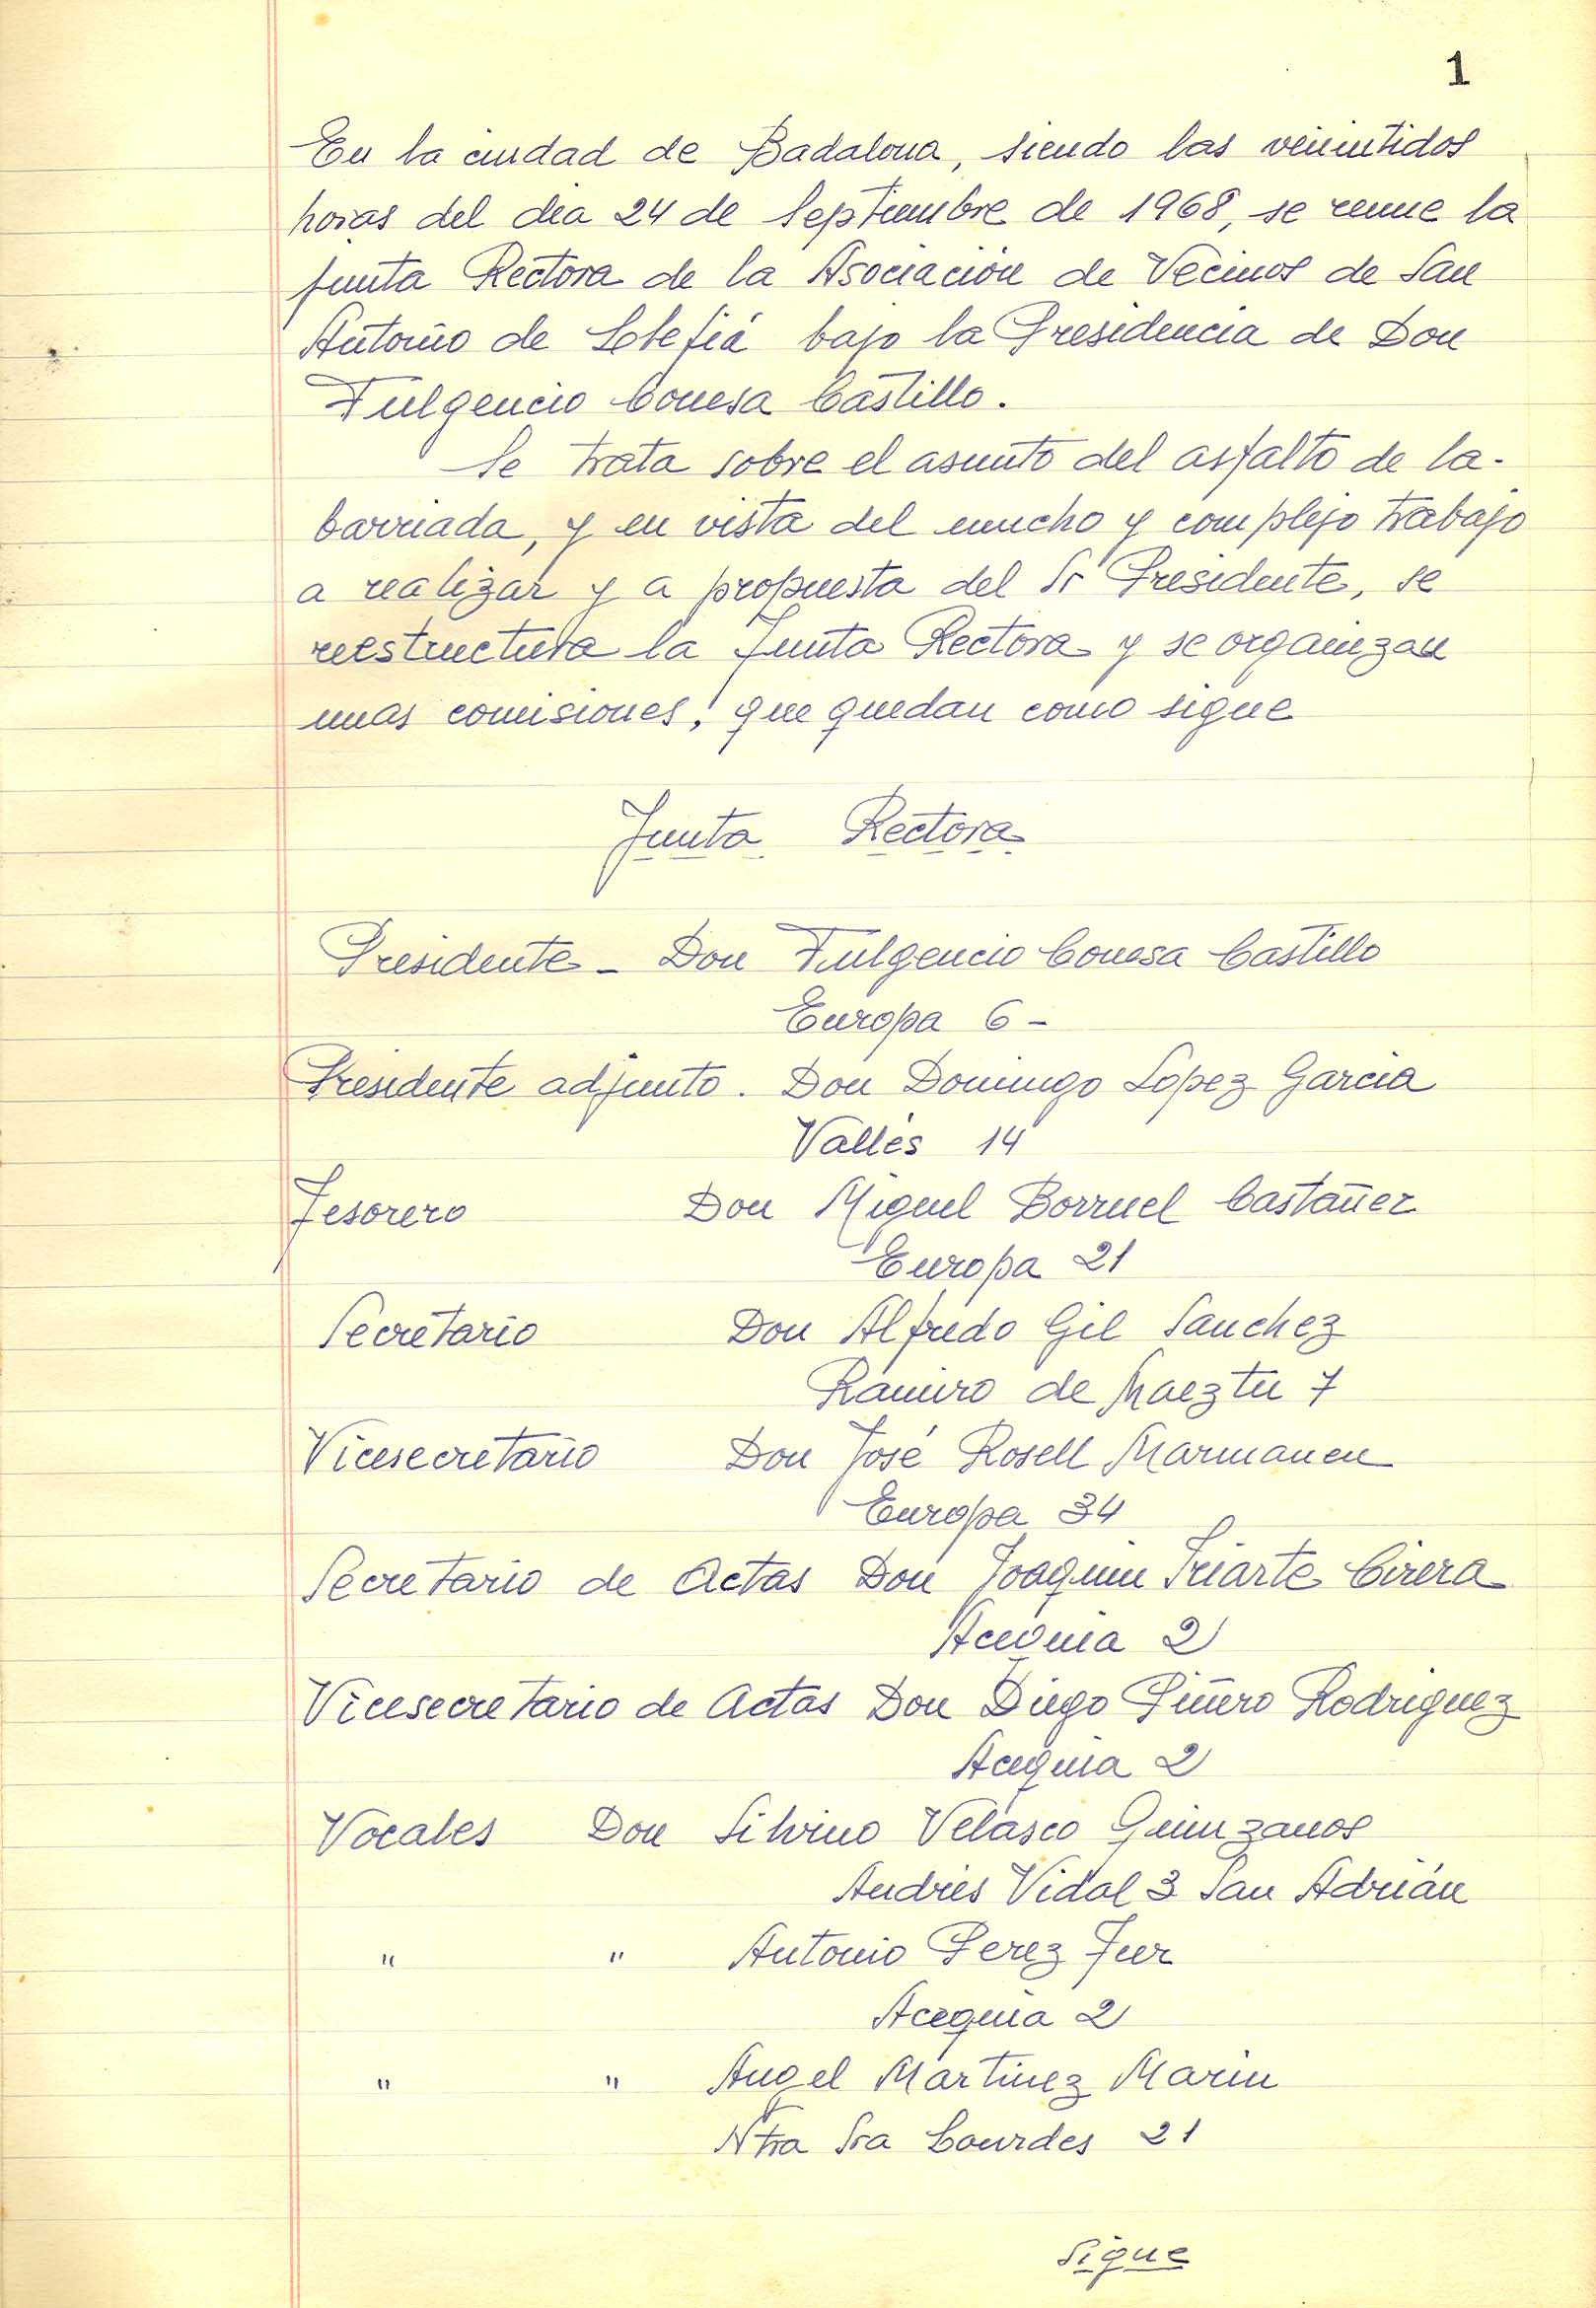 1
En la ciudad de Badalona, siendo las veintidos
horas del dia 24 de Septiembre de 1968, se reune la
Junta Rectora de la Asociación de Vecinos de San
Antonio de Llefiá bajo la Presidencia de Don
Fulgencio Conesa Castillo.
Se trata sobre el asunto del asfalto de la
barriada, y en vista del mucho y complejo trabajo
a realizar y a propuesta del Sr Presidente, se
reestructura la Junta Rectora y se organizan
unas comisiones, que quedan como sigue
Junta Rectora
Presidente - Don Fulgencio Conesa Castillo
Europa 6 -
Presidente adjunto. Don Domingo Lopez Garcia
Vallés 14
Tesorero Don Miguel Borruel Castañer
Europa 21
Secretario Don Alfredo Gil Sanchez
Ramiro de Maeztu 7
Vicesecretario Don José Rosell Marmaneu
Europa 34
Secretario de Actas Don Joaquin Iriarte Cirera
Acequia 2
Vicesecretario de Actas Don Diego Piñero Rodriguez
Acequia 2
Vocales Don Silvino Velasco Guinzanos
Andrés Vidal 3 San Adrián
" " Antonio Perez Fur
Acequia 2
" " Angel Martinez Marin
Ntra Sra Lourdes 21
Sigue